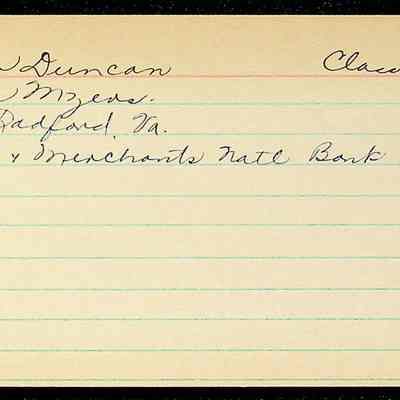 Duncan Class
Myers.
Radford, Va.
& Merchants Natl Bank